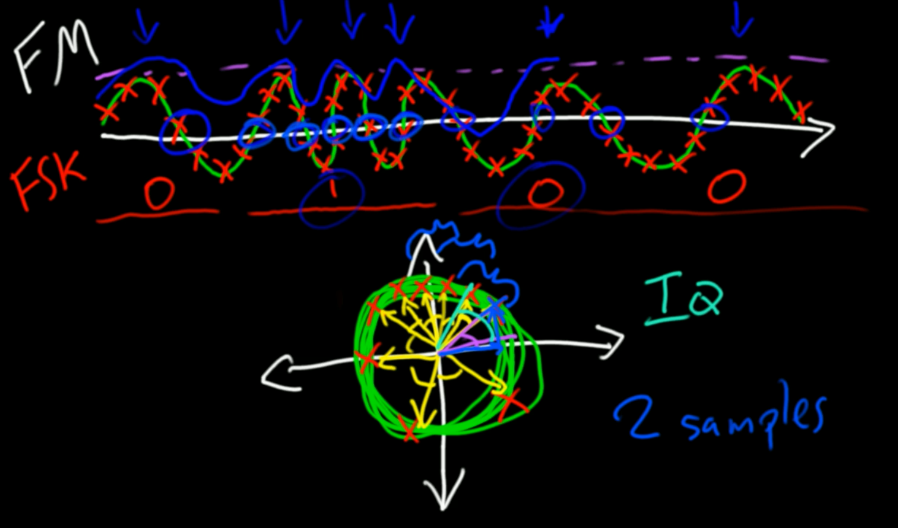 FM
FSK
0 1 0 0
IQ
2 samples